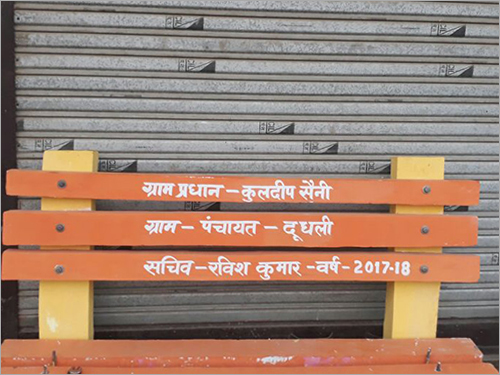 ग्राम प्रधान - कुलदीप सैनी
ग्राम - पंचायत - दूधली
सचिव - रविश कुमार - वर्ष - 2017-18